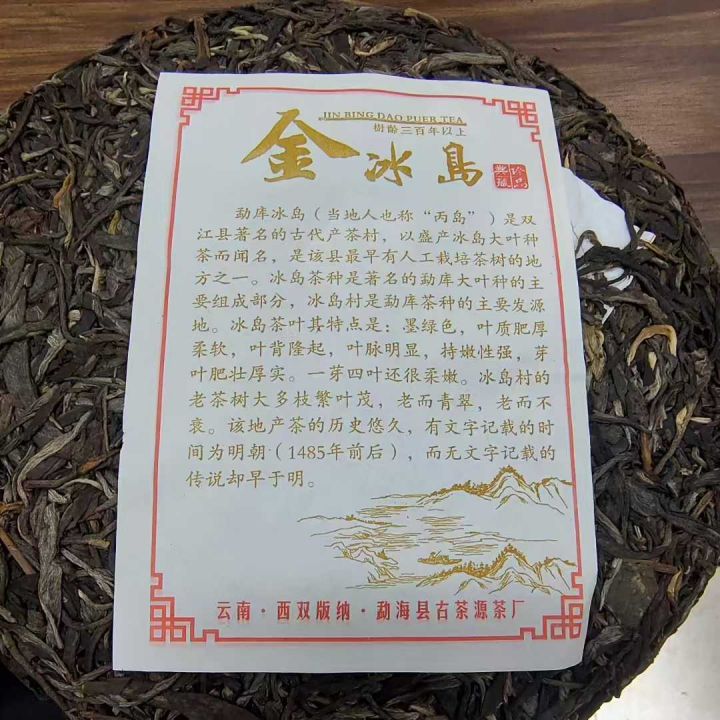 JIN BING DAO PUER TEA
樹齡三百年以上
金冰島
珍品
典藏
勐库冰岛（当地人也称“丙岛”）是双
江县著名的古代产茶村，以盛产冰岛大叶种
茶而闻名，是该县最早有人工栽培茶树的地
方之一。冰岛茶种是著名的勐库大叶种的主
要组成部分，冰岛村是勐库茶种的主要发源
地。冰岛茶叶其特点是：墨绿色，叶质肥厚
柔软，叶背隆起，叶脉明显，持嫩性强，芽
叶肥壮厚实。一芽四叶还很柔嫩。冰岛村的
老茶树大多枝繁叶茂，老而青翠，老而不
衰。该地产茶的历史悠久，有文字记载的时
间为明朝（1485年前后），而无文字记载的
传说却早于明。
云南·西双版纳·勐海县古茶源茶厂